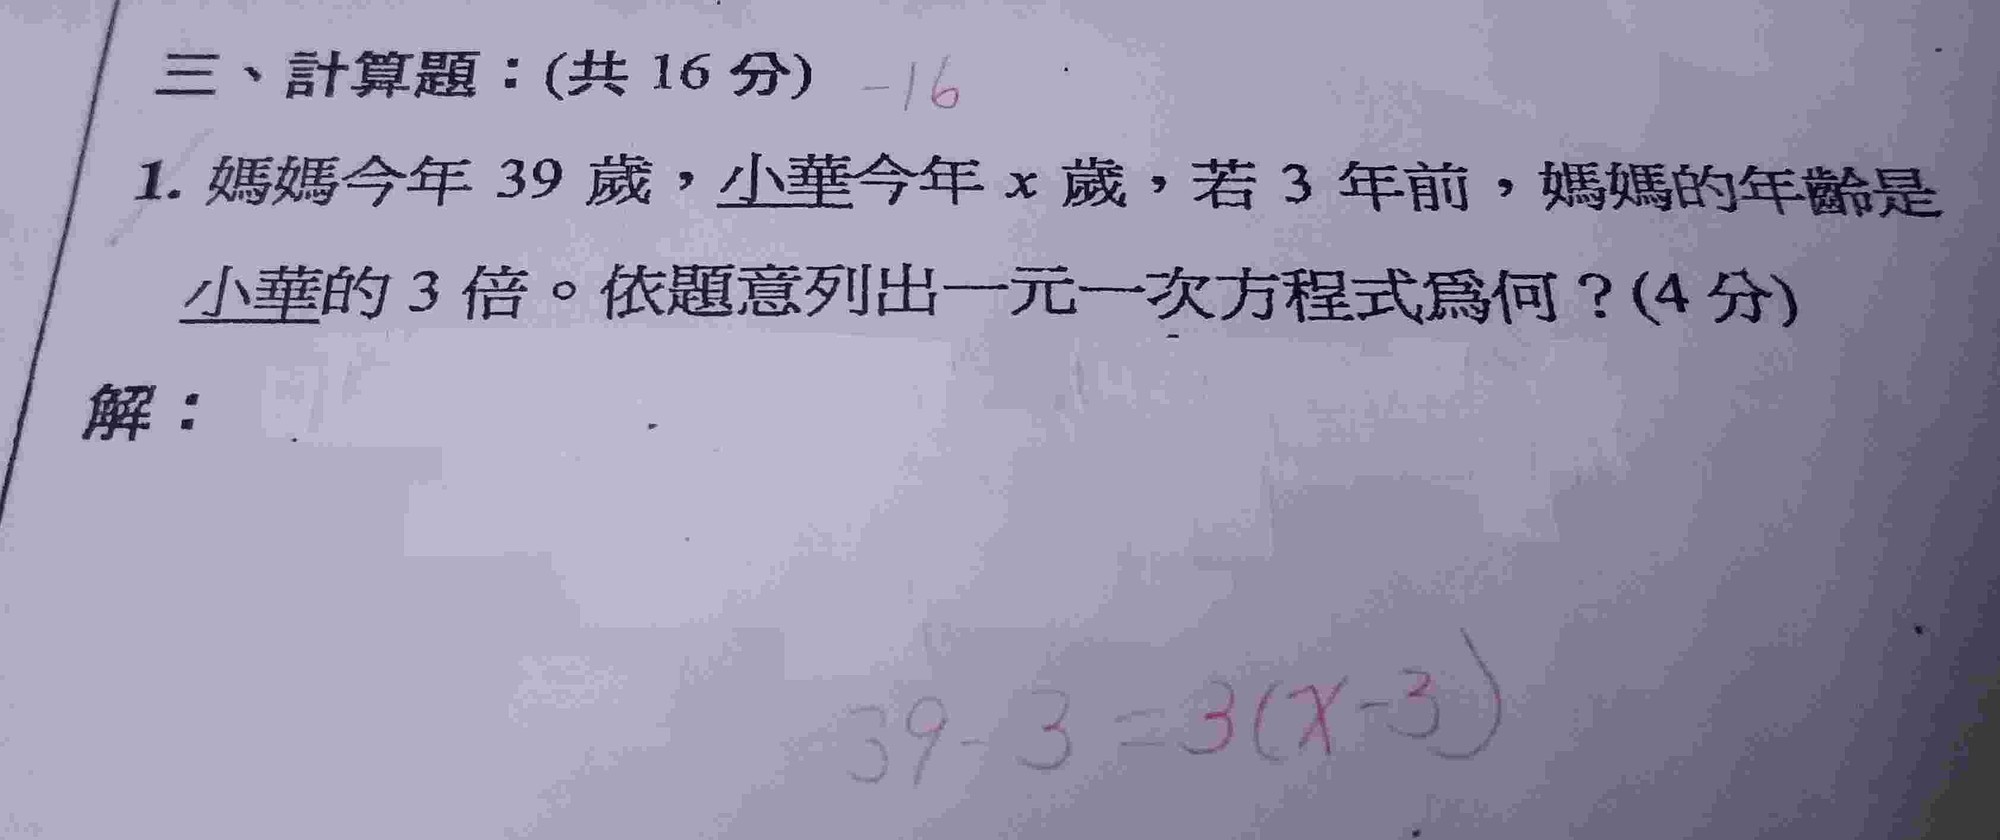 三、計算題：(共 16 分) -16
1. 媽媽今年 39 歲，小華今年 x 歲，若 3 年前，媽媽的年齡是
小華的 3 倍。依題意列出一元一次方程式為何？(4 分)
解：
39-3=3(x-3)